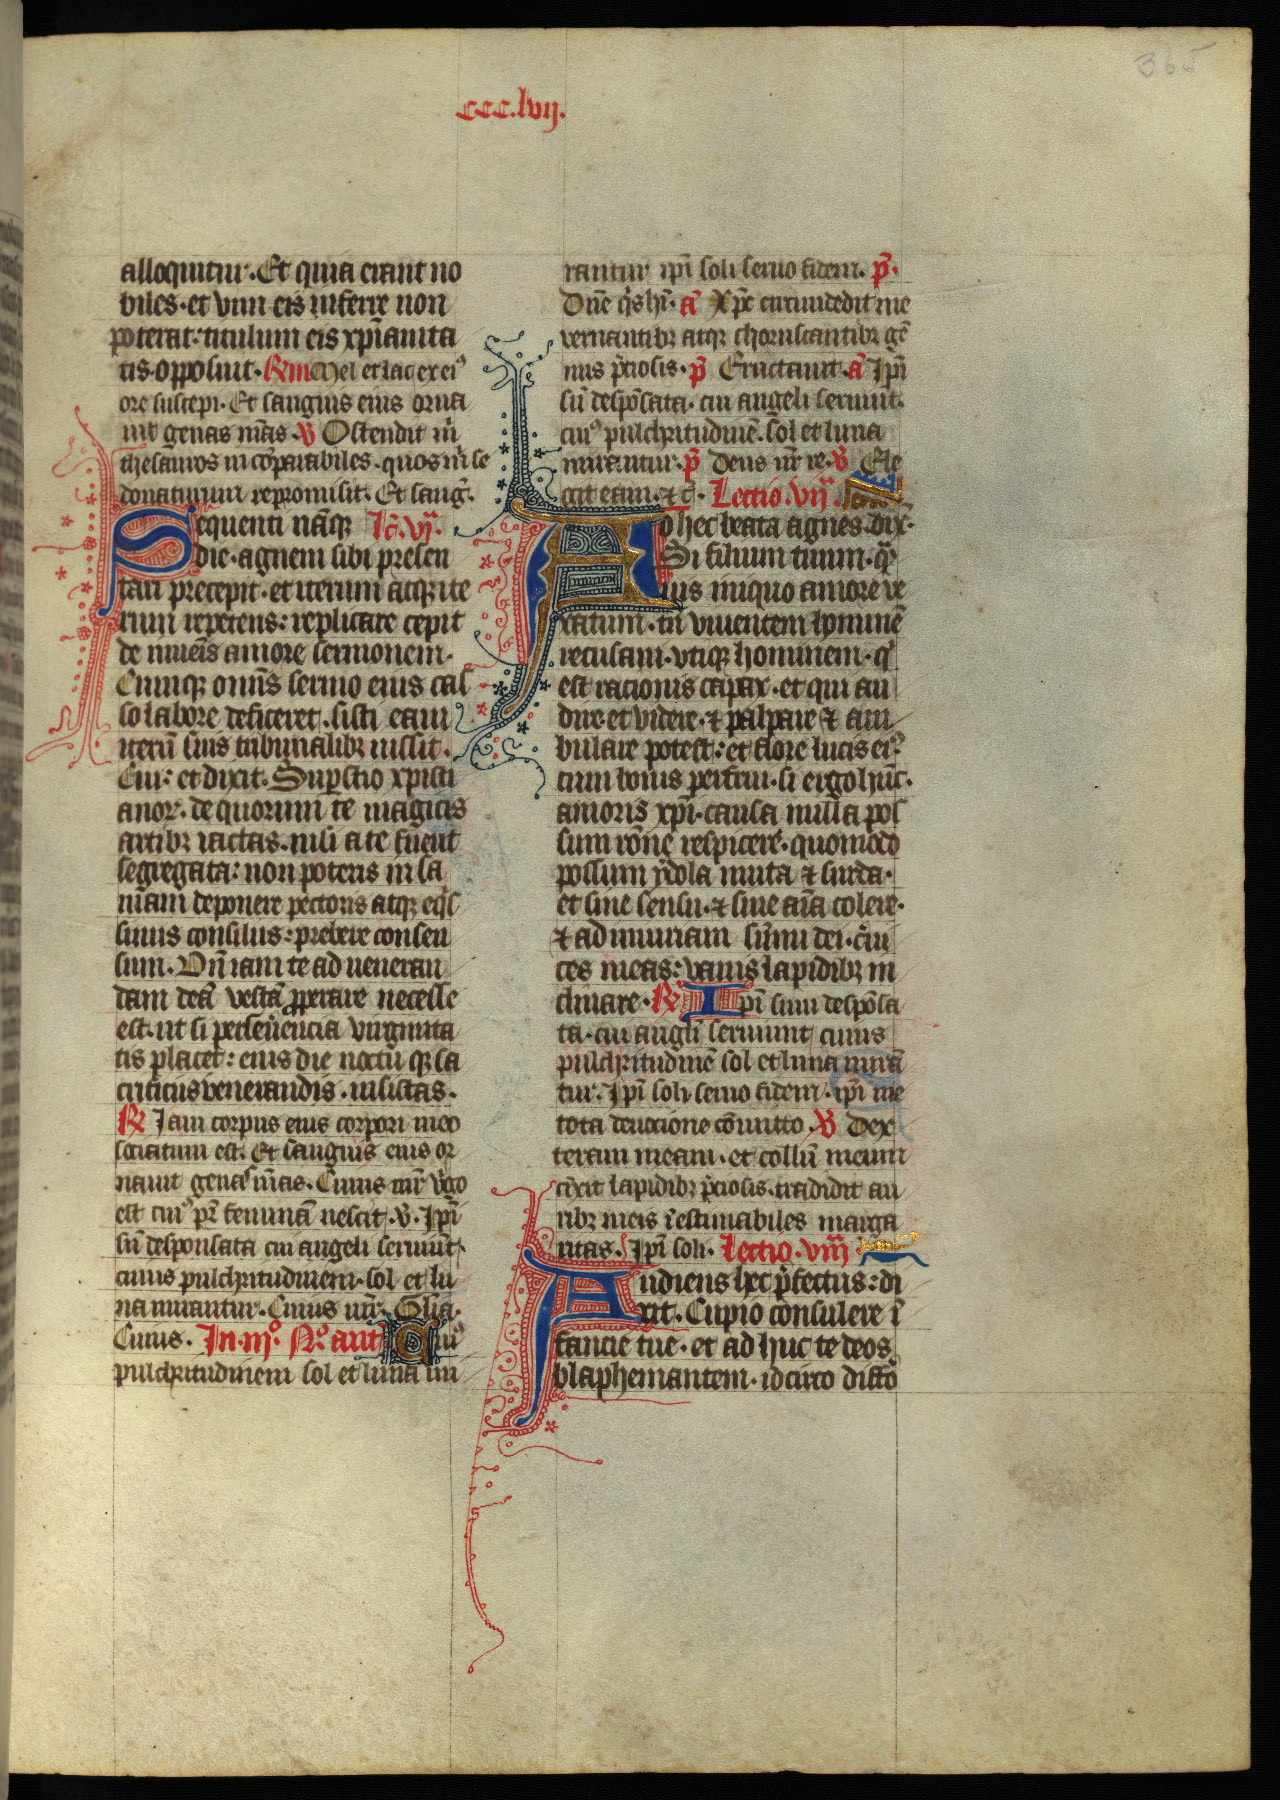 365
ccc.lvij.
alloquitur. Et quia erant no
biles. et vim eis inferre non
poterat: titulum eis xp̄ianita
tis opposuit. R̄m Mel et lac ex ei⁹
ore suscepi. Et sanguis eius orna
uit genas m̄as. V Ostendit m̄
thesauros incōparabiles. quos m̄ se
donaturum repromisit. Et sanḡ.
Sequenti nāq̨ Lc̄. vj.
die. agnem sibi presen
tari precepit. et iterum atq̨ ite
rum repetens: replicare cepit
de iuueīs amore sermonem.
Cumq̨ omīs sermo eius cas
so labore deficeret. sisti eam
iterū suis tribunalibꝫ iussit.
Cui: et dixit. Suꝑstitio xpisti
anoꝝ. de quorum te magicis
artibꝫ iactas. nisi a te fuerit
segregata: non poteris insa
niam deponere pectoris atq̨ eq̄s
simus consilus: prebere consen
sum. Vn̄ iam te ad ueneran
dam deā vestā ꝓperare necesse
est. ut si perseuerencia virginita
tis placet: eius die noctu q̨ sa
crificus venerandis. insistas.
R Iam corpus eius corpori meo
sociatum est. Et sanguis eius or
nauit genas m̄as. Cuius mr̄ v̄go
est cui⁹ pr̄ feminā nescit. v. Ip̄i
sū desponsata cui angeli seruiūt
cuius pulchritudinem. sol et lu
na mirantur. Cuius mr̄. Gl̄ia.
Cuius. In .iij.º Nº. ant̄ Cui⁹
pulchritudinem sol et luna mi
rantur ip̄i soli seruo fidem. p̄.
Dn̄e q̄s hī. ā Xp̄c circumdedit me
vernantibꝫ atq̨ choruscantibꝫ gē
mis p̄ciosis. p̄ Eructauit. ā Ip̄i
sū despōsata. cui angeli seruiunt.
cui⁹ pulchritudinē. sol et luna
mirantur. p̄ Deus nr̄ re. V Ele
git eam. et c̄. Lectio. vij.
Ad hec beata agnes. dix̄.
Si filium tuum. q̄
uis iniquo amore ve
xatum. tn̄ viuentem hominē
recusaui. vtiq̨ hominem. q̄
est racionis capax. et qui au
dire et videre. ⁊ palpare ⁊ am
bulare potest: et flore lucis ei⁹
cum bonis perfrui. si ergo hūc.
amoris xp̄i. causa nulla pos
sum rōne respicere. quomodo
possum ydola muta ⁊ surda.
et sine sensu. ⁊ sine aīa colere.
⁊ ad iniuriam sūmi dei. c̄ui
ces meas: vanis lapidibꝫ in
clinare. R Ip̄i sum despōsa
ta. cui angl̄i seruiunt cuius
pulchritudinē sol et luna mirā
tur. Ip̄i soli seruo fidem. ip̄i me
tota deuocione cōmitto. V Dex
teram meam. et collū meum
cīxit lapidibꝫ p̄ciosis. tradidit au
ribꝫ meis īestimabiles marga
ritas. Ip̄i soli. Lectio. viij.
Audiens hec p̄fectus: di
xit. Cupio consulere ī
fancie tue. et ad huc te deos
blaphemantem. idcirco diffō